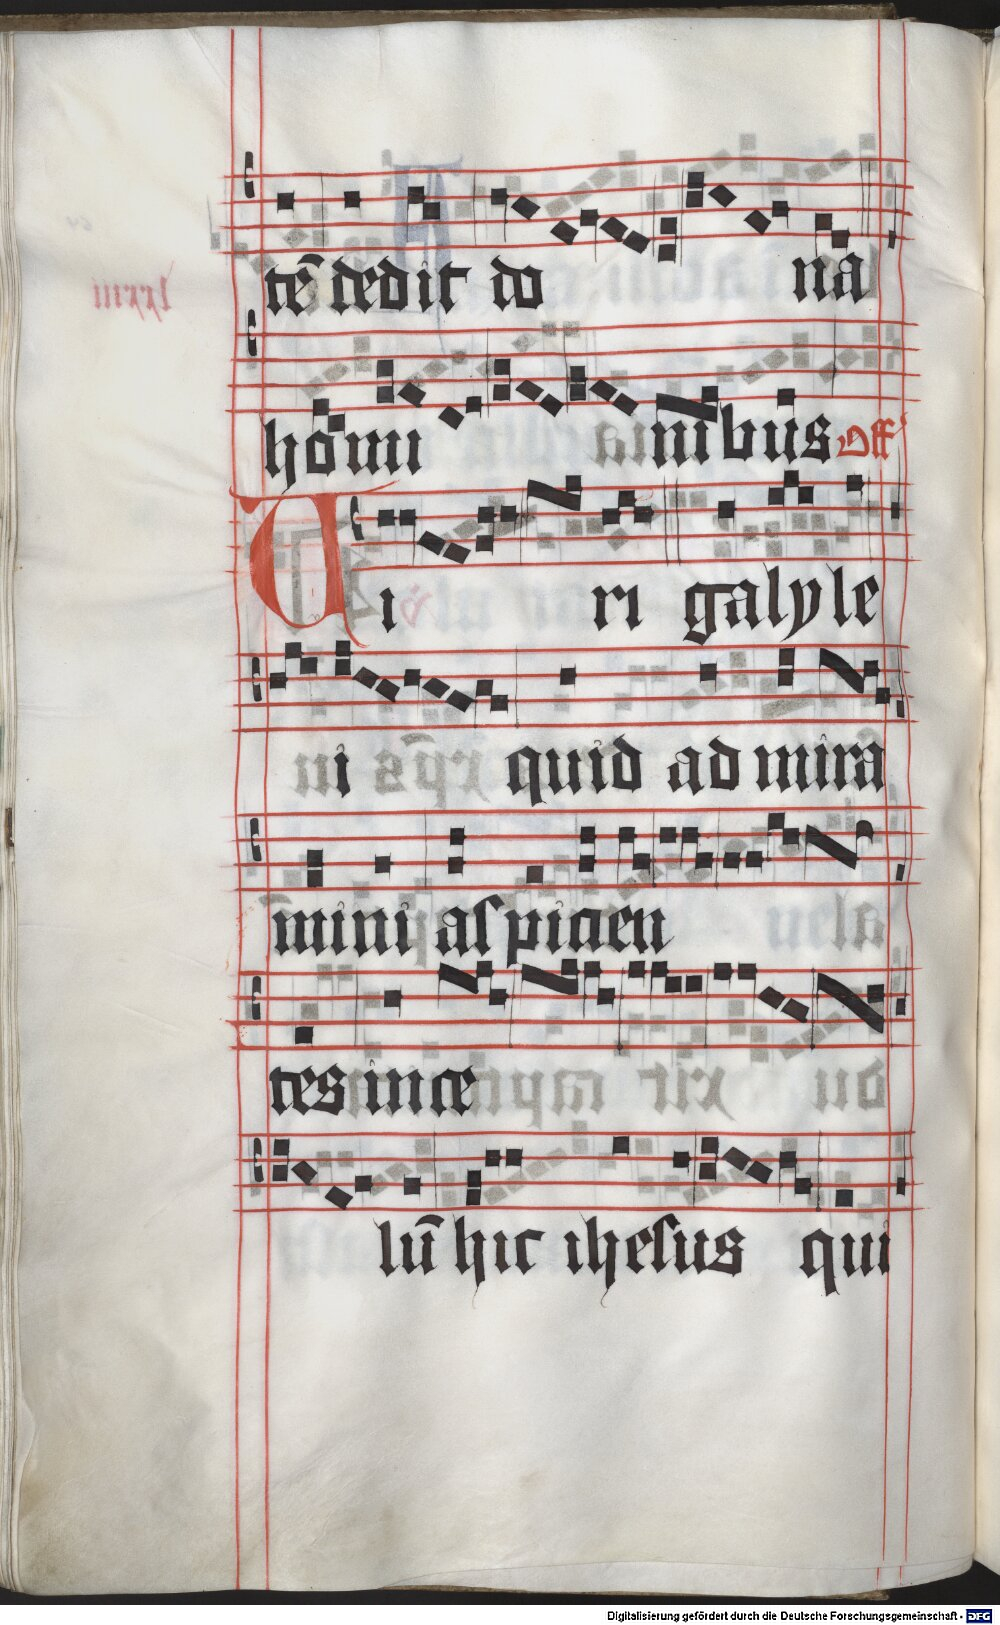 tē dedit do na
homi nibus Off
Ui ri galyle
i quid ad mira
mini aspicien
tes in ce
lū hic ihesus qui
Digitalisierung gefördert durch die Deutsche Forschungsgemeinschaft - DFG